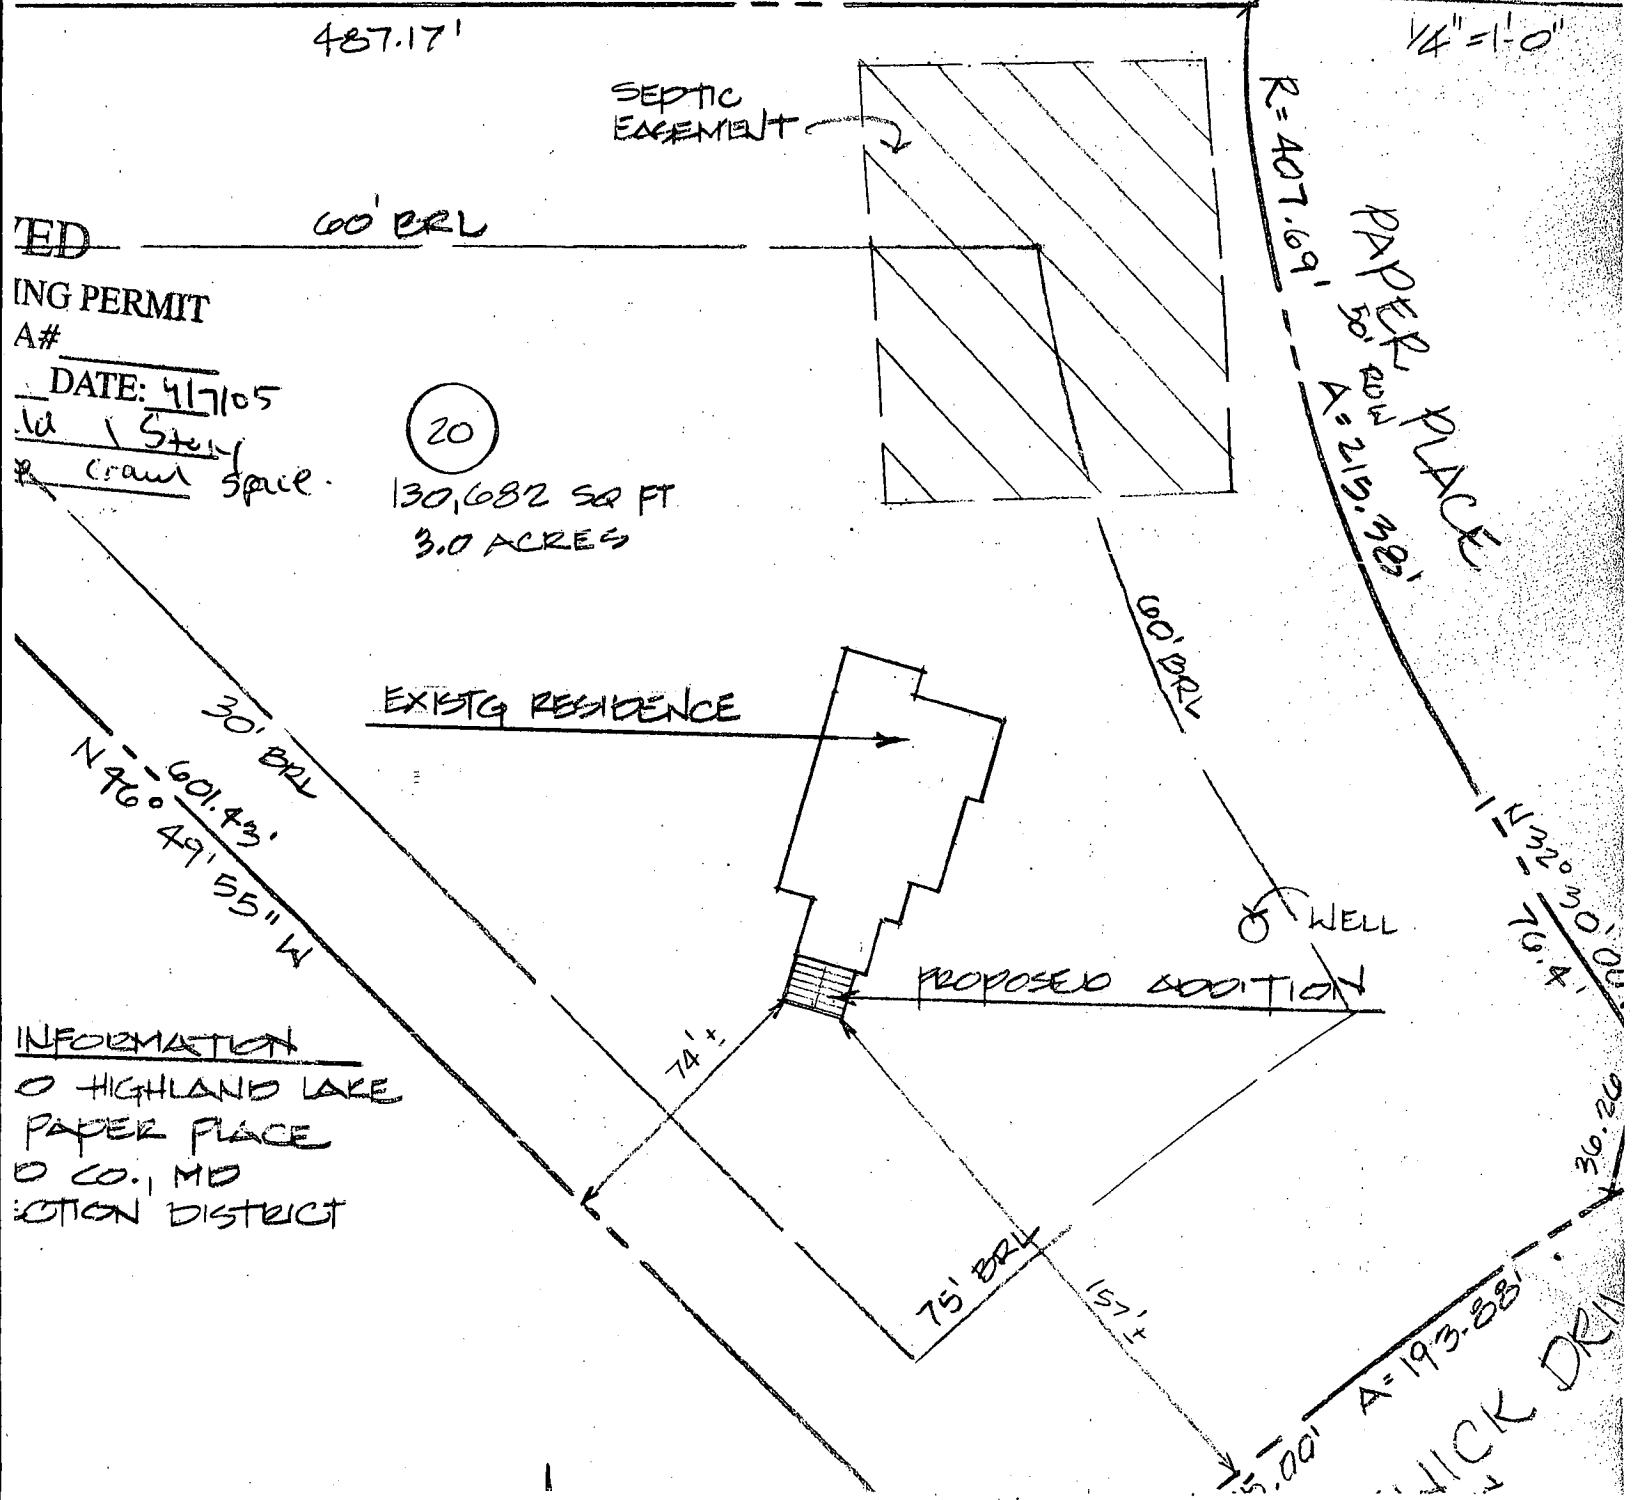 487.17'
1/4"=1'-0"
SEPTIC
EASEMENT
R=407.69'
PAPER PLACE
50' ROW
A=215.38'
60' BRL
ING PERMIT
A#
DATE: 4/7/05
1 Story
crawl space.
20
130,682 SQ FT
3.0 ACRES
60' BRL
EXISTG RESIDENCE
30' BRL
601.43'
N 46° 49' 55" W
N 32° 30' 00"
76.4'
WELL
PROPOSED ADDITION
74'±
INFORMATION
HIGHLAND LAKE
PAPER PLACE
CO., MD
DISTRICT
36.26
75' BRL
157'±
A=193.88'
5.00'